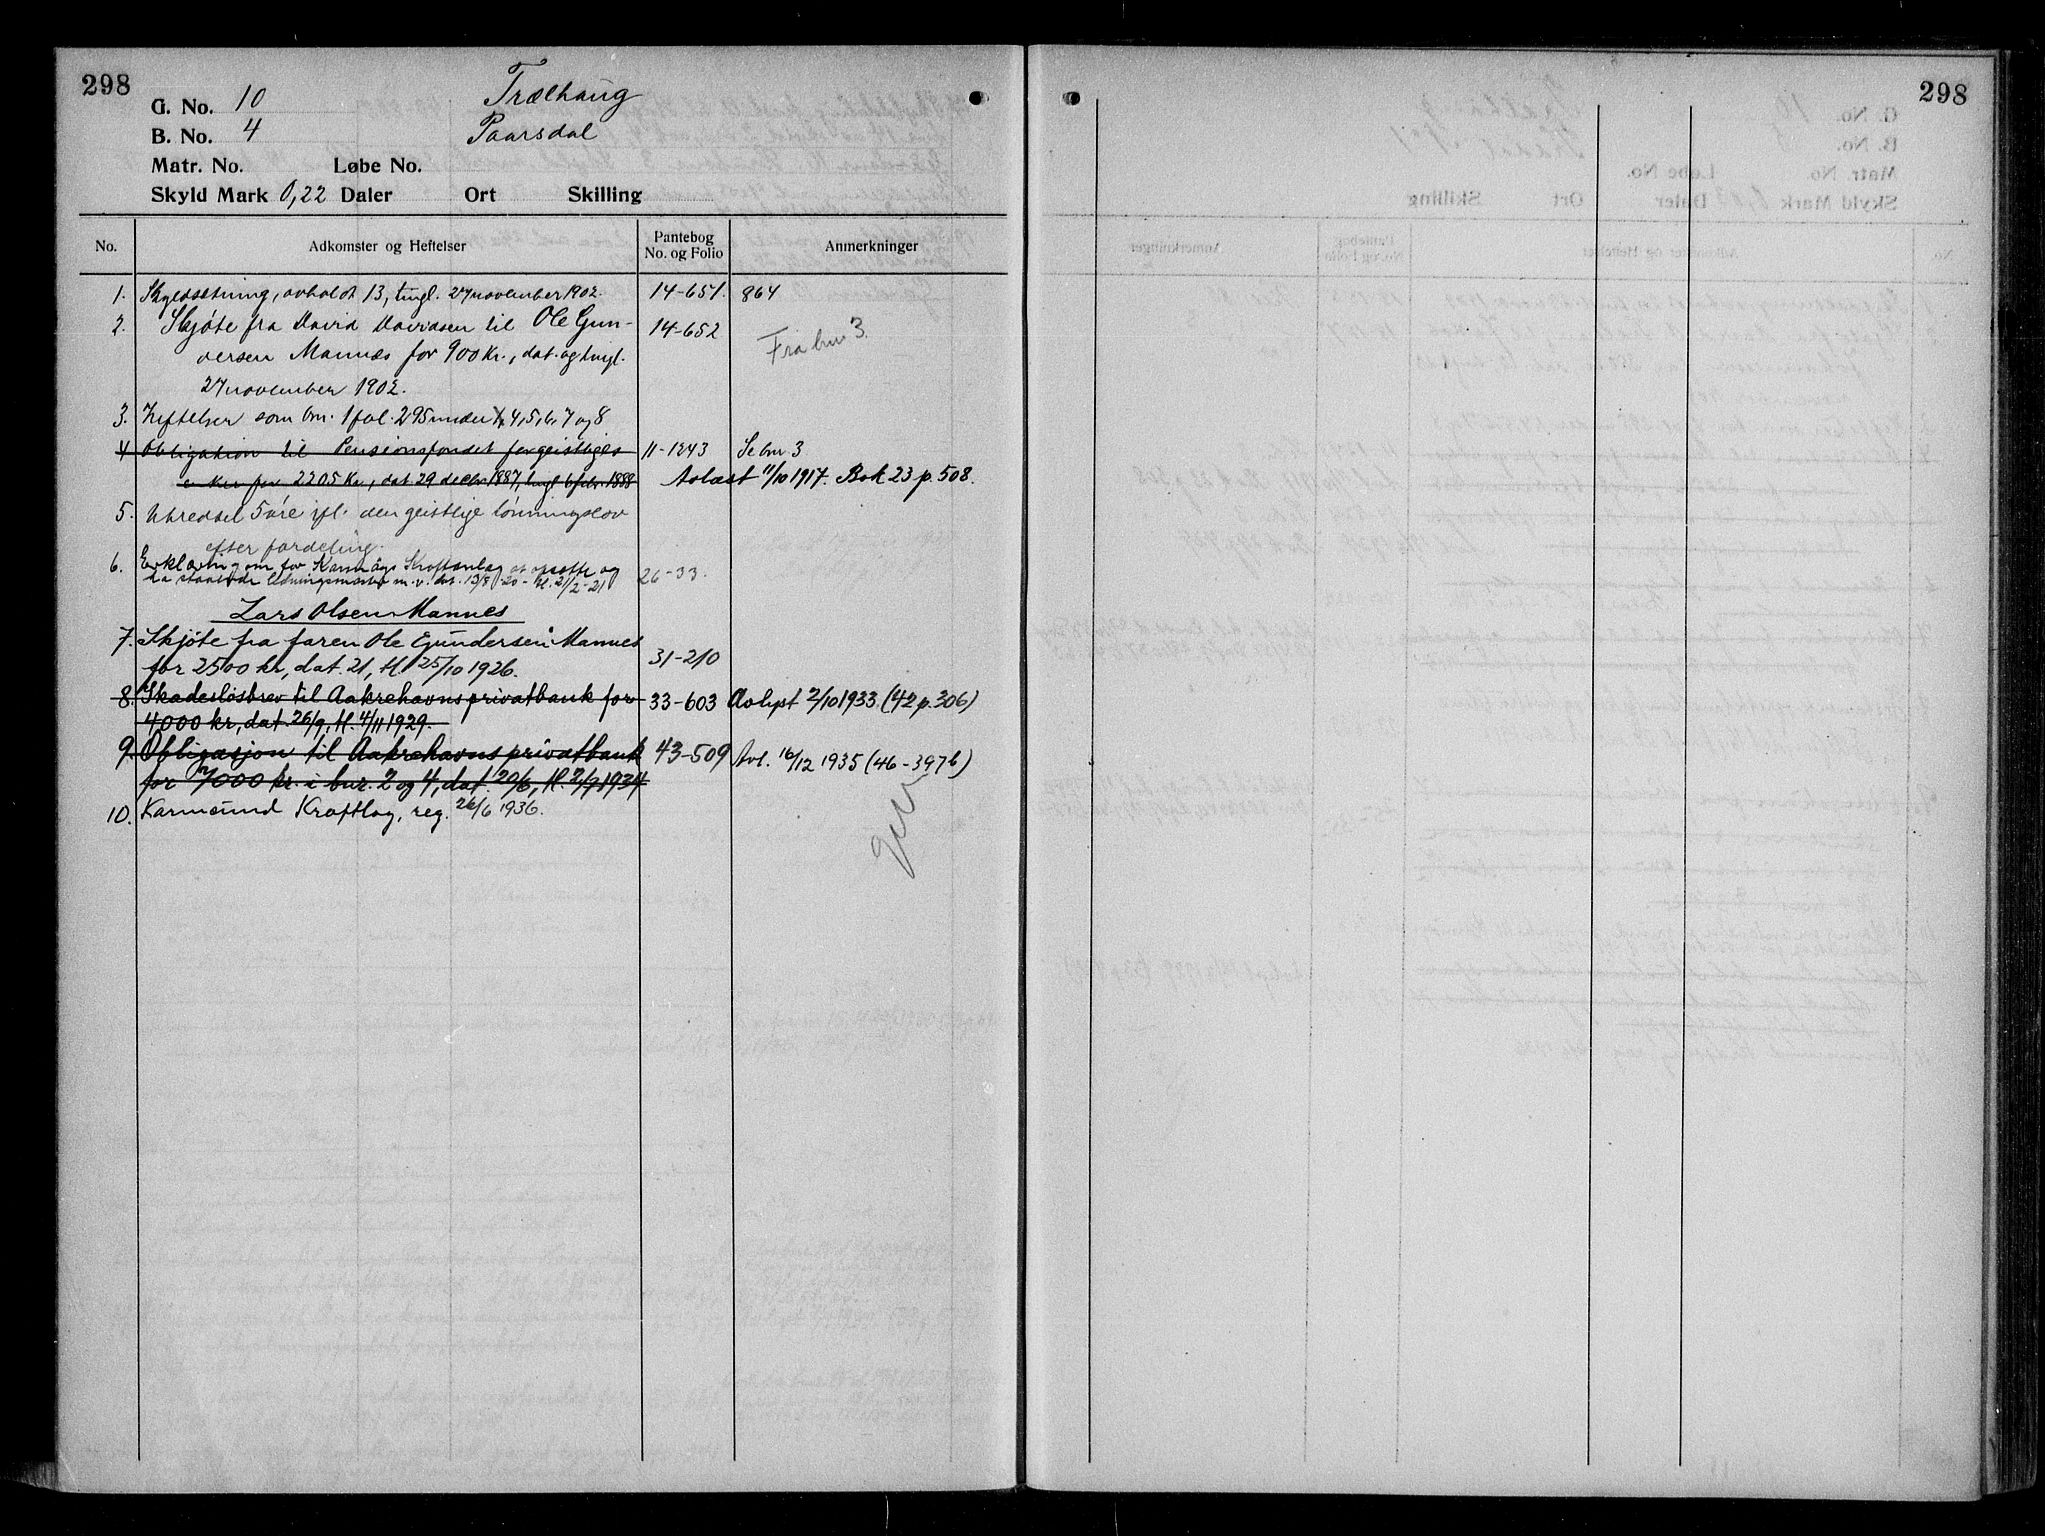 298
G. No. 10 Trælhaug
B. No. 4 Paarsdal
Matr. No. Løbe No.
Skyld Mark 0,22 Daler Ort Skilling
No. Adkomster og Heftelser Pantebog No. og Folio Anmerkninger
1. Skyldsetning, avholdt 13, tingl. 27 november 1902. 14-651. 864
2. Skjøte fra David Davidsen til Ole Gun- 14-652 Fra bnr 3.
dersen Mannes for 900 Kr., dat. og tingl.
27 november 1902.
3. Heftelser som bnr. 1 fol. 295 under 4, 5, 6, 7 og 8
4 Obligation til Pensionsfondet for geistliges 11-1243 Se bnr 3
enker for 2205 Kr., dat 29 decbr 1887, tingl 6 febr 1888 Avlæst 11/10 1917. Bok 23 p. 508.
5. Utredsel 5 øre ifl. den geistlige lønningslov
efter fordeling.
6. Erklæring om for Karmøys Kraftanlag at opsætte og 26-33.
ha staaende ledningsmaster m.v. dat. 13/8-20 - tl. 21/2-21
Lars Olsen Mannes
7. Skjøte fra faren Ole Gundersen Mannes
for 2500 kr, dat. 21, tl. 25/10 1926. 31-210
8. Skadesløsbrev til Aakrehavns privatbank for 33-603 Avlyst 2/10 1933. (42 p. 306)
4000 kr, dat. 26/9, tl. 4/11 1929.
9. Obligasjon til Aakrehavns privatbank 43-509 Avl. 16/12 1935 (46-397b)
for 7000 kr. i bnr. 2 og 4, dat. 20/6, tl. 2/7 1934
10. Karmsund Kraftlag, reg. 26/6 1936.
298